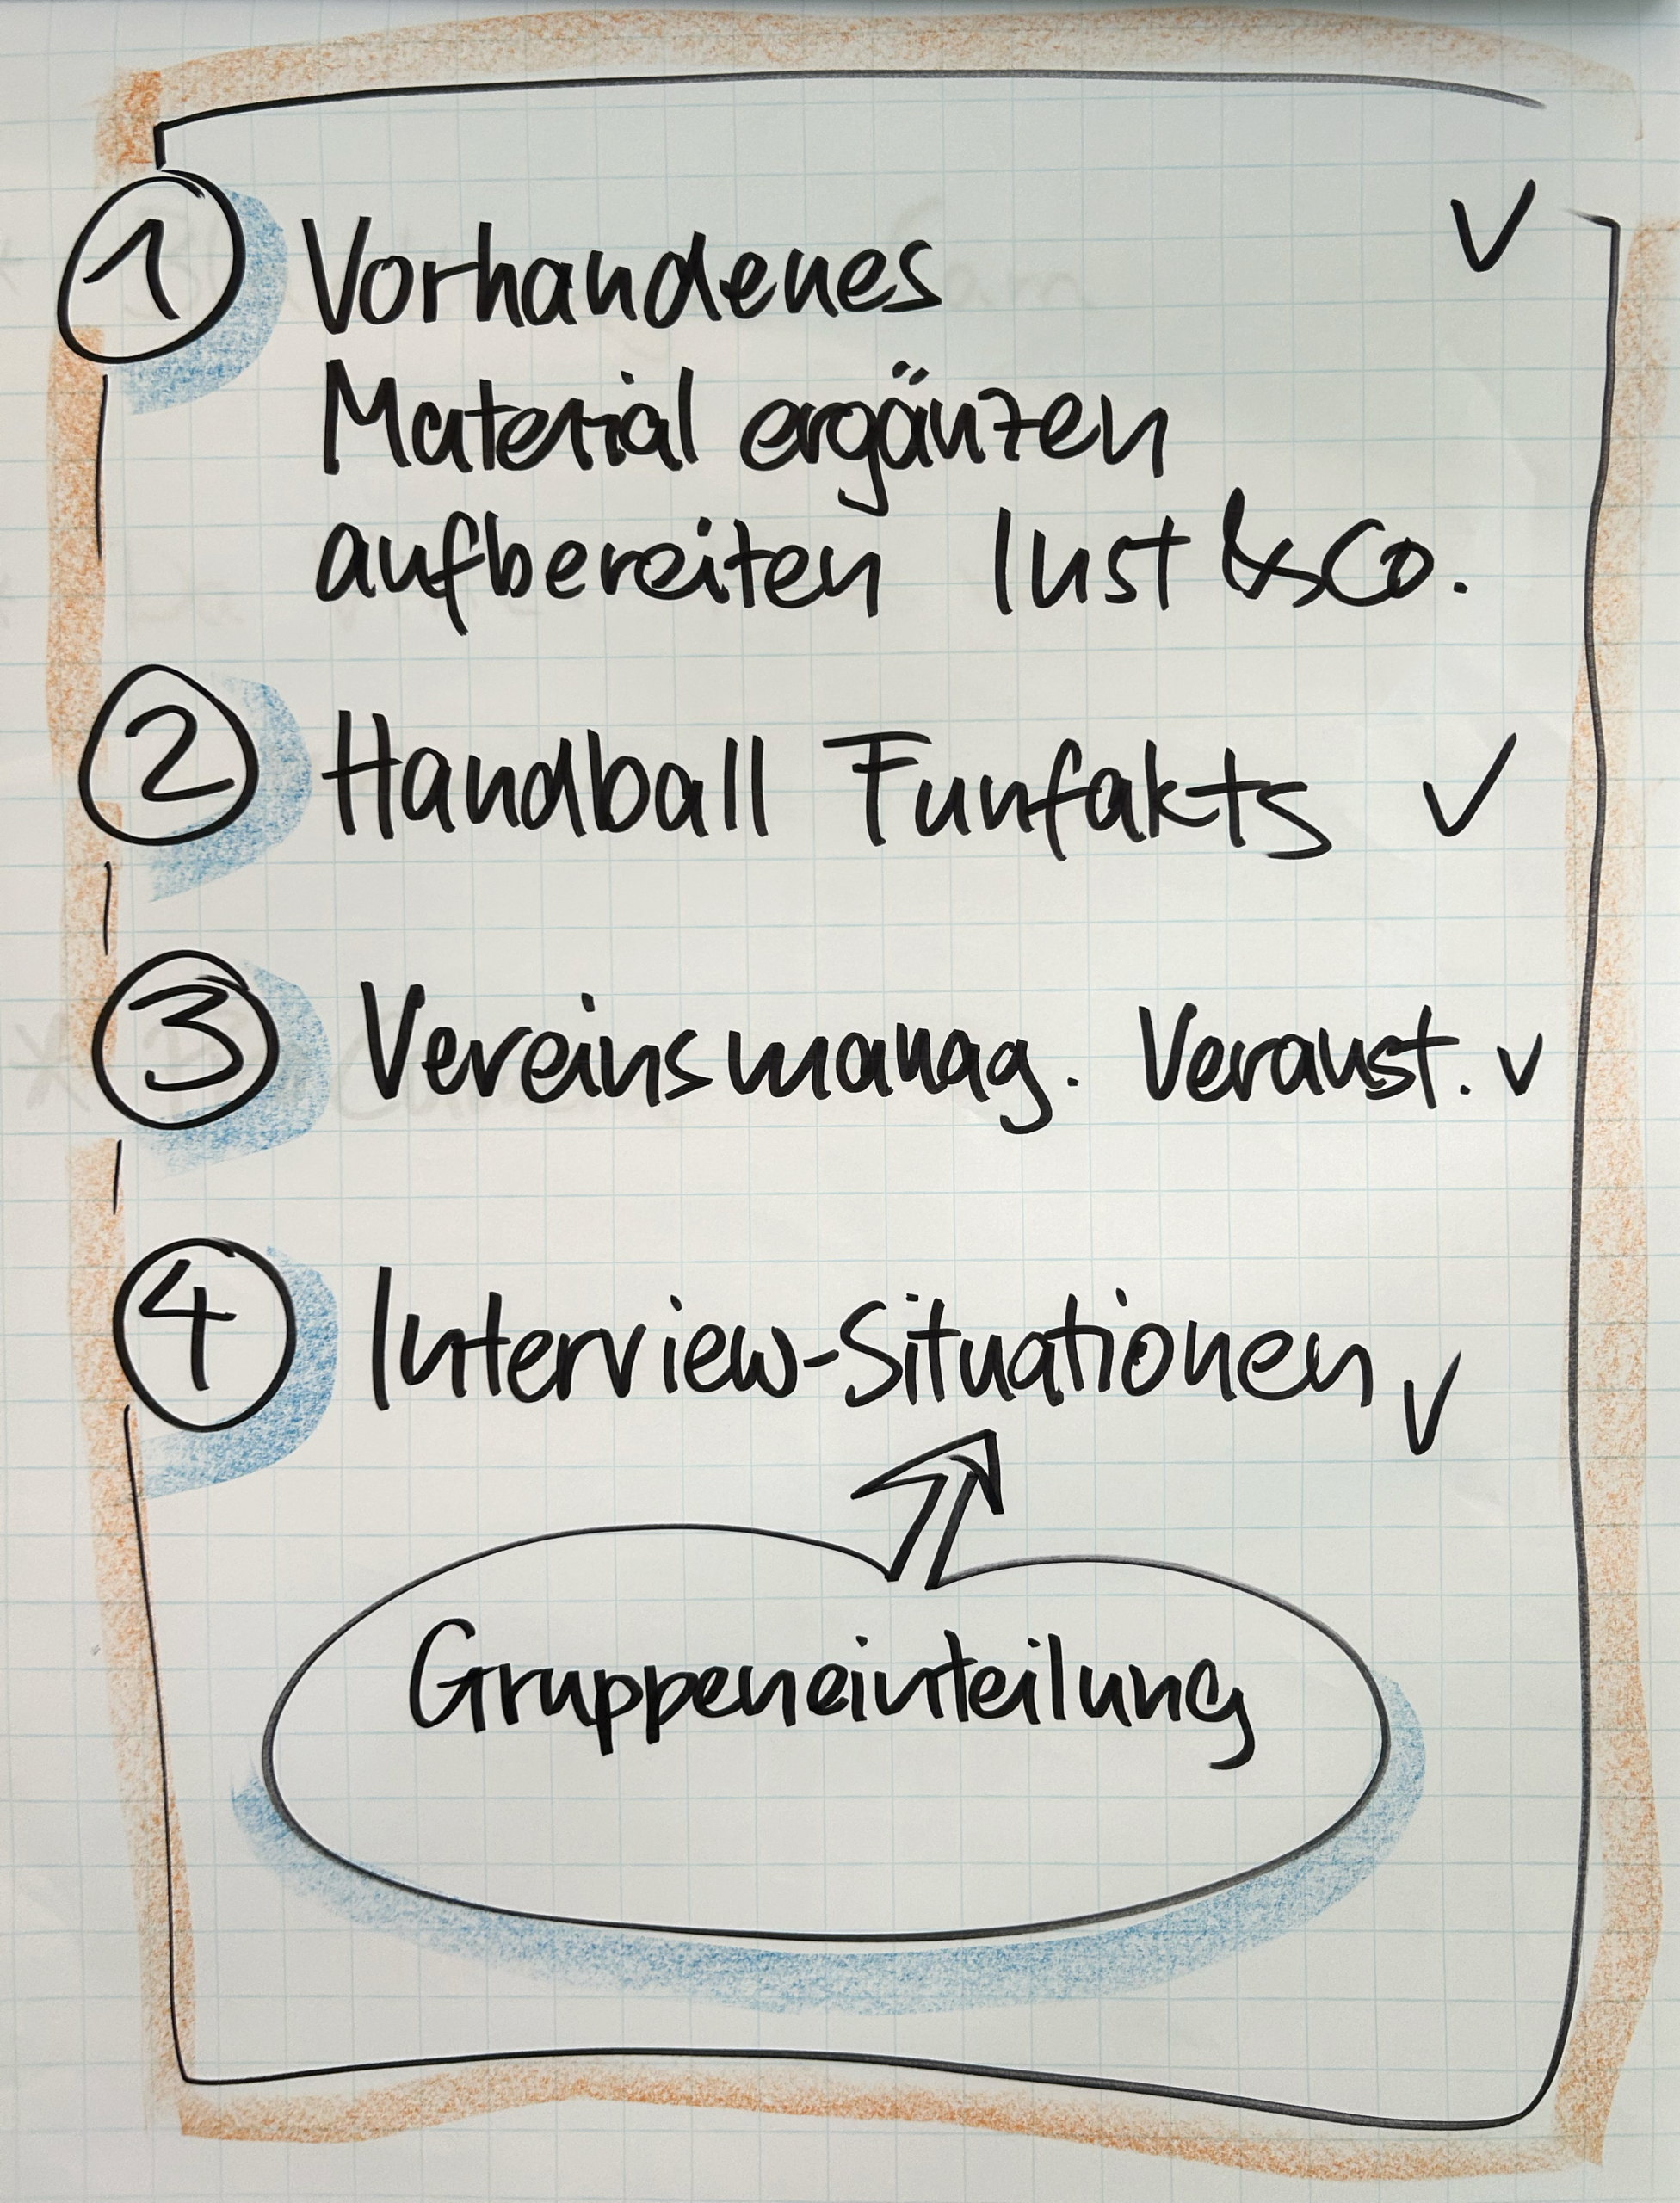 1 Vorhandenes ✓
Material ergänzen
aufbereiten Lust & Co.
2 Handball Funfakts ✓
3 Vereinsmanag. Veranst. ✓
4 Interview-Situationen ✓
Gruppeneinteilung